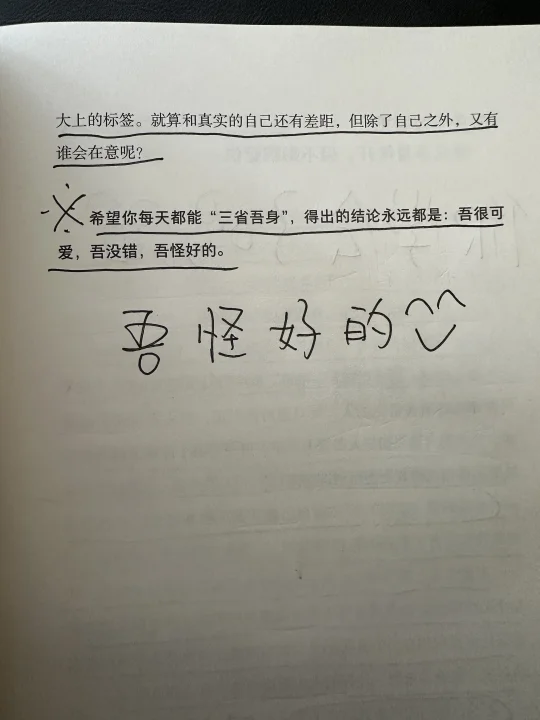 大上的标签。就算和真实的自己还有差距，但除了自己之外，又有
谁会在意呢？
希望你每天都能“三省吾身”，得出的结论永远都是：吾很可
爱，吾没错，吾怪好的。
吾怪好的